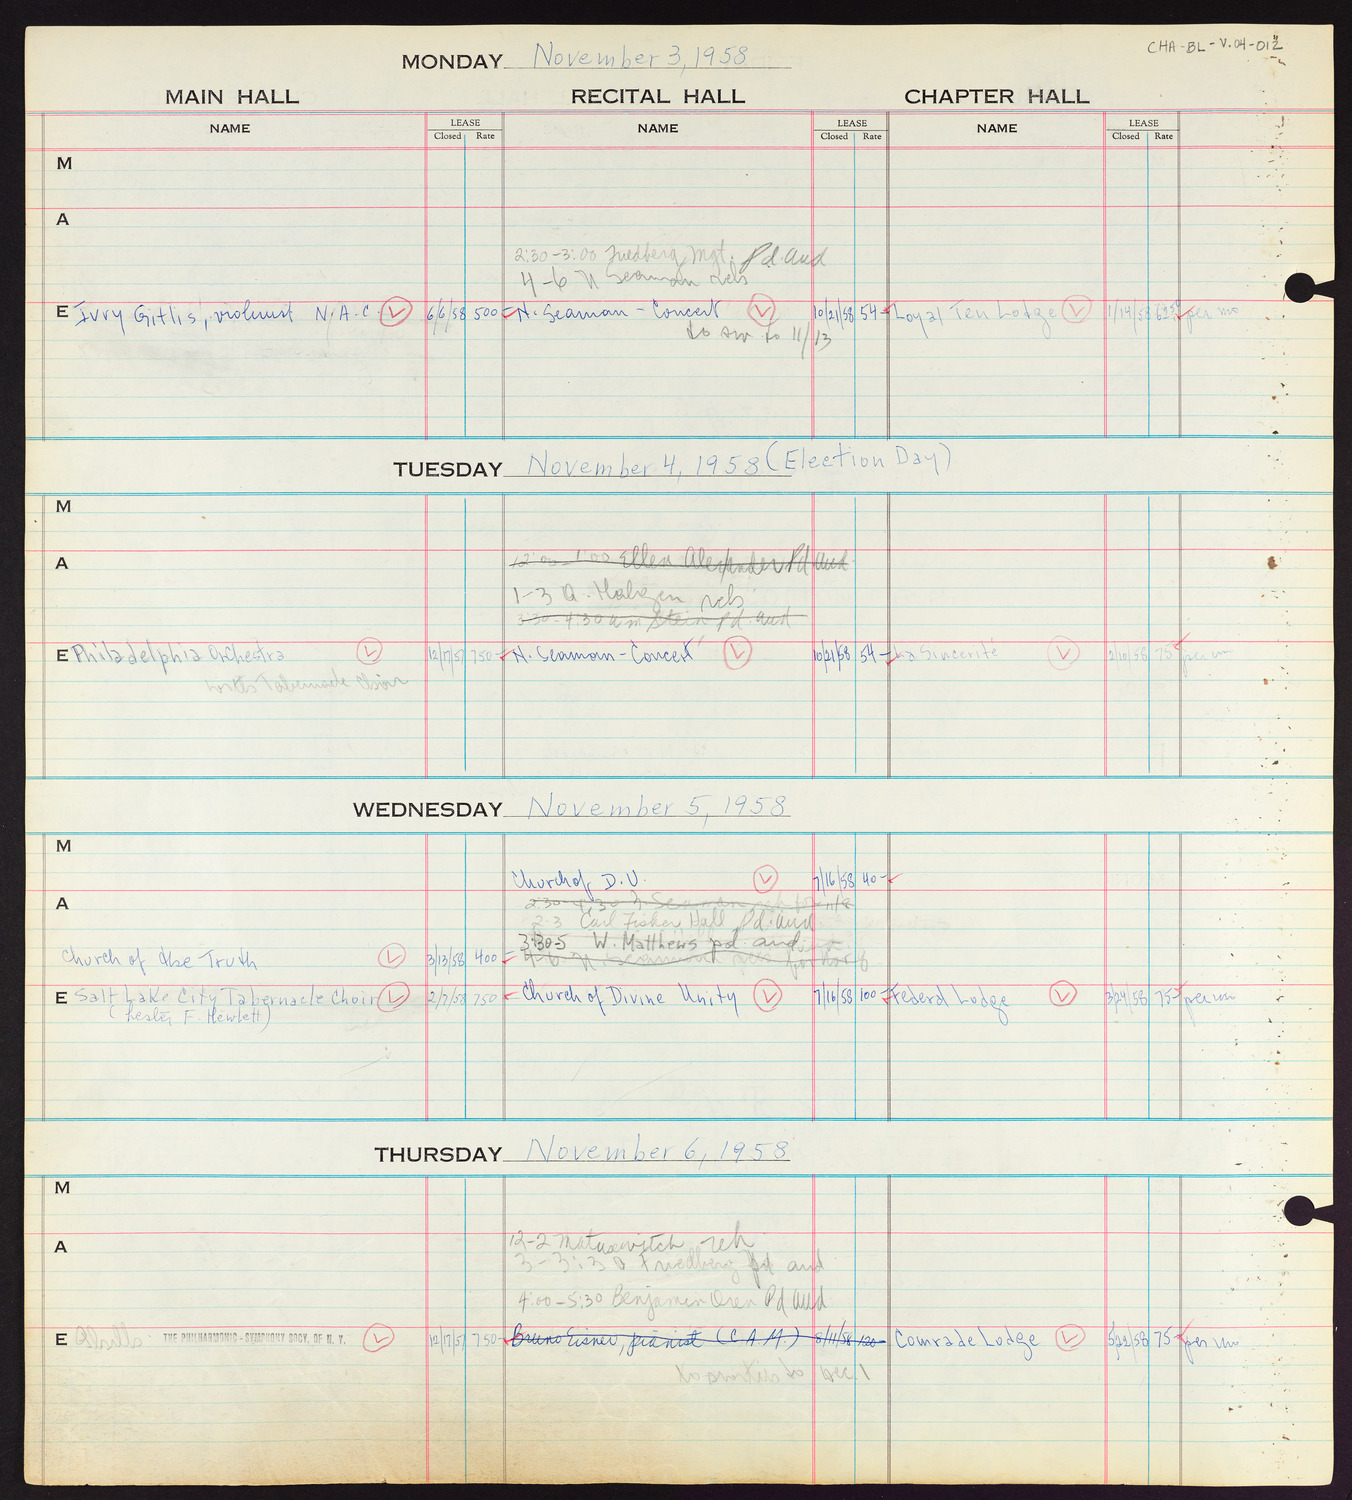 CHA-BL-V.04-012
MONDAY November 3, 1958
MAIN HALL RECITAL HALL CHAPTER HALL
NAME LEASE Closed Rate NAME LEASE Closed Rate NAME LEASE Closed Rate
M
A
2:30-3:00 Friedberg Mgt. Pd. aud
4-6 N Seaman reh
E Ivry Gitlis, violinist N.A.C. 6/6/58 500 N. Seaman - Concert 10/21/58 54 Loyal Ten Lodge 1/14/58 per mo
to sw to 11/13
TUESDAY November 4, 1958 (Election Day)
M
A
12:00 1:00 Ellen Alexander Pd aud
1-3 A. reh
3:30-4:30 am Stein pd. aud
E Philadelphia Orchestra 12/17/57 750 N. Seaman - Concert 10/21/58 54 La Sincerite 2/10/58 75 per mo
Tabernacle Choir
WEDNESDAY November 5, 1958
M
Church of D.U. 7/16/58 40
A
2:30 4:30 N Seaman reh 11/8
2-3 Carl Fisher Hall Pd. aud
3:30-5 W. Matthews pd. aud
Church of the Truth 3/13/58 400 4-6 N Seaman reh for
E Salt Lake City Tabernacle Choir 2/7/58 750 Church of Divine Unity 7/16/58 100 Federal Lodge 3/24/58 75 per mo
(Lester F. Hewlett)
THURSDAY November 6, 1958
M
A
12-2 Matusevitch reh
3-3:30 Friedberg pd aud
4:00-5:30 Benjamin Oren Pd aud
E THE PHILHARMONIC-SYMPHONY SOCY. OF N. Y. 12/17/57 750 Bruno Eisner, pianist (C.A.M.) 8/11/58 120 Comrade Lodge 5/22/58 75 per mo
to Dec 1